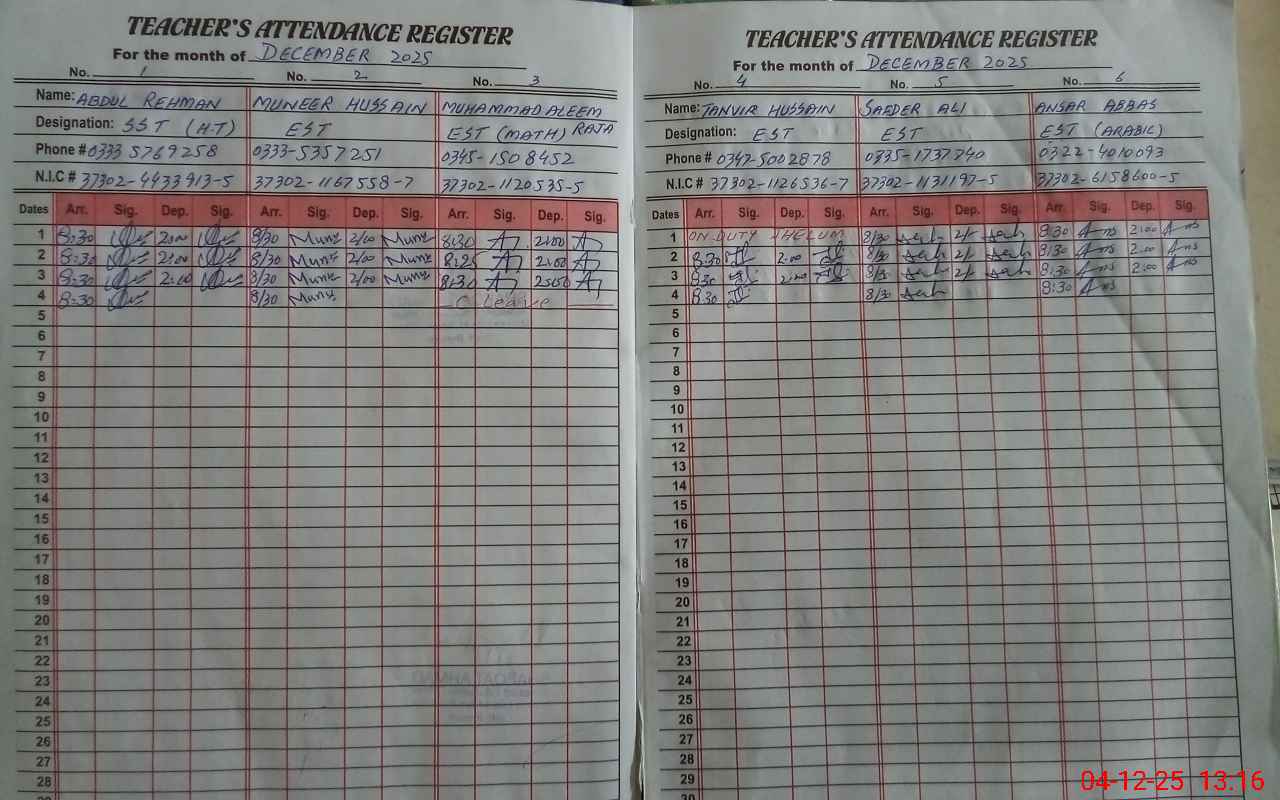 TEACHER'S ATTENDANCE REGISTER
For the month of DECEMBER 2025
No. 1 No. 2 No. 3
Name: ABDUL REHMAN MUNEER HUSSAIN MUHAMMAD ALEEM RAJA
Designation: SST (H.T) EST EST (MATH)
Phone # 0333 5769258 0333-5357251 0345-1508452
N.I.C # 37302-4433913-5 37302-1167558-7 37302-1120535-5
Dates Arr. Sig. Dep. Sig. Arr. Sig. Dep. Sig. Arr. Sig. Dep. Sig.
1 8:30 2:00 8/30 Mune 2/00 Mune 8:30 2:00
2 8:30 2:00 8/30 Mune 2/00 Mune 8:25 2:00
3 8:30 2:00 8/30 Mune 2/00 Mune 8:30
4 8:30 8/30 Mune C Leave
5
6
7
8
9
10
11
12
13
14
15
16
17
18
19
20
21
22
23
24
25
26
27
28
TEACHER'S ATTENDANCE REGISTER
For the month of DECEMBER 2025
No. 4 No. 5 No. 6
Name: TANVIR HUSSAIN SAFDER ALI ANSAR ABBAS
Designation: EST EST EST (ARABIC)
Phone # 0347-5002878 0335-1737340 0322-4010093
N.I.C # 37302-1126536-7 37302-1131197-5 37302-6158600-5
Dates Arr. Sig. Dep. Sig. Arr. Sig. Dep. Sig. Arr. Sig. Dep. Sig.
1 ON DUTY JHELUM 8/30 2/ 8:30 2:00
2 8:30 2:00 8/30 2/ 8:30 2:00
3 8:30 2:00 8/30 2/ 8:30 2:00
4 8:30 8/30 8:30
5
6
7
8
9
10
11
12
13
14
15
16
17
18
19
20
21
22
23
24
25
26
27
28
29
30
04-12-25 13.16